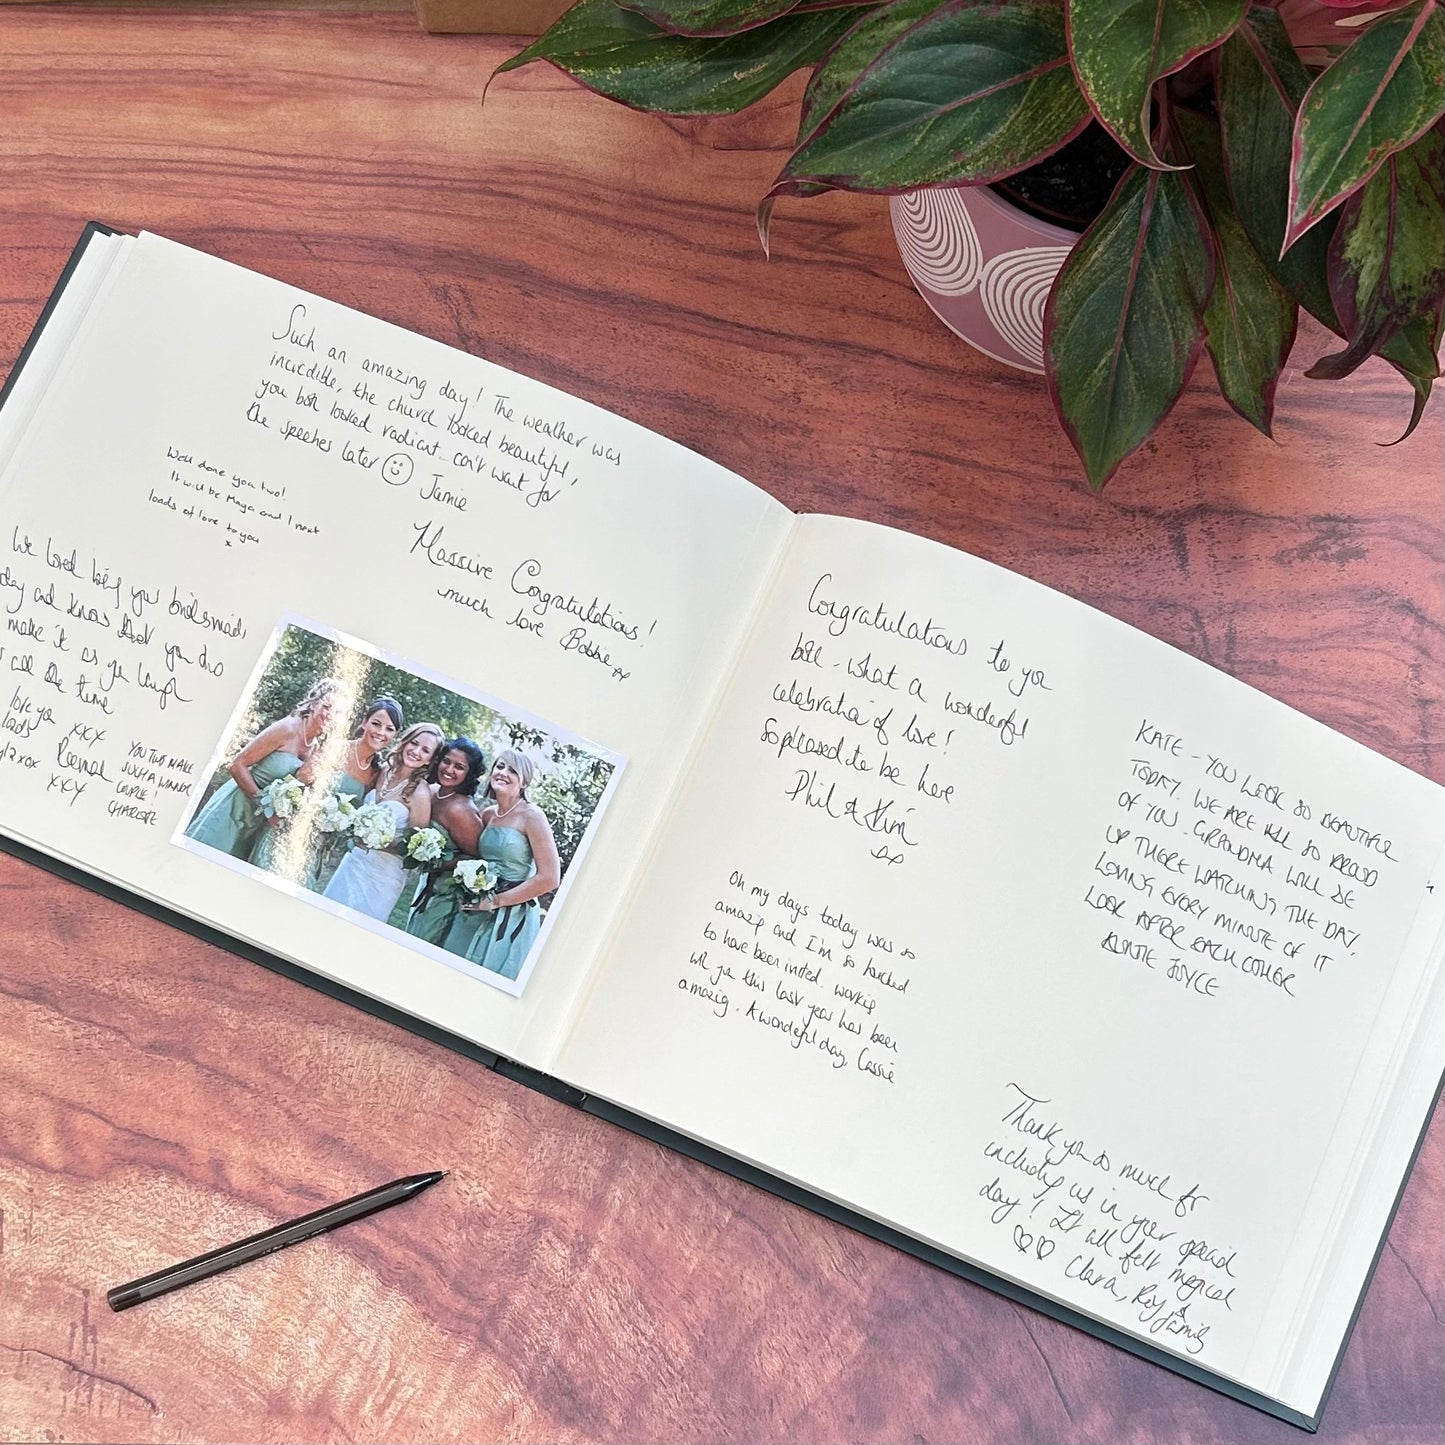 Such an amazing day! The weather was
incredible, the church looked beautiful,
you both looked radiant.. can't wait for
the speeches later ☺ Jamie
Well done you two!
It will be Maya and I next
loads of love to you
x
Massive Congratulations!
much love Bobbie xx
We loved being your bridesmaids
day and know that you two
make it as you laugh
all the time
love you xxx
lads
xox
xxx
YOU TWO MAKE
SUCH A WINNER
COUPLE!
CHARLOTTE
Congratulations to you
both - what a wonderful
celebration of love!
So pleased to be here
Phil & Kim
xx
Oh my days today was so
amazing and I'm so honoured
to have been invited. working
with you this last year has been
amazing. A wonderful day, Cassie
KATE - YOU LOOK SO BEAUTIFUL
TODAY. WE ARE ALL SO PROUD
OF YOU. GRANDMA WILL BE
UP THERE WATCHING THE DAY,
LOVING EVERY MINUTE OF IT
LOOK AFTER EACH OTHER
AUNTIE JOYCE
Thank you so much for
including us in your special
day! It all felt magical
♡♡ Clara, Roy &
family